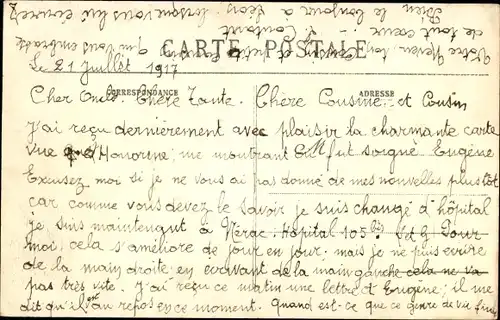 CARTE POSTALE
Le 21 Juillet 1917
CORRESPONDANCE
ADRESSE
Cher Oncle. Chère Tante. Chère Cousine et Cousin
J'ai reçu dernièrement avec plaisir la charmante carte
vue Honorine; me montrant fut soigné Eugène
Excusez moi si je ne vous ai pas donné de mes nouvelles plus tôt
car comme vous devez le savoir je suis changé d'hôpital
je suis maintenant à Nérac. Hôpital 105 bis L et G Pour
moi, cela s'améliore de jour en jour; mais je ne puis écrire
de la main droite, en écrivant de la main gauche cela ne va
pas très vite. J'ai reçu ce matin une lettre d'Eugène; il me
dit qu'il est au repos en ce moment. Quand est-ce que ce genre de vie fin
Bien le bonjour à Léon lorsque vous lui écrirez
de tout cœur
Votre Neveu, et Cousin qui vous embrasse